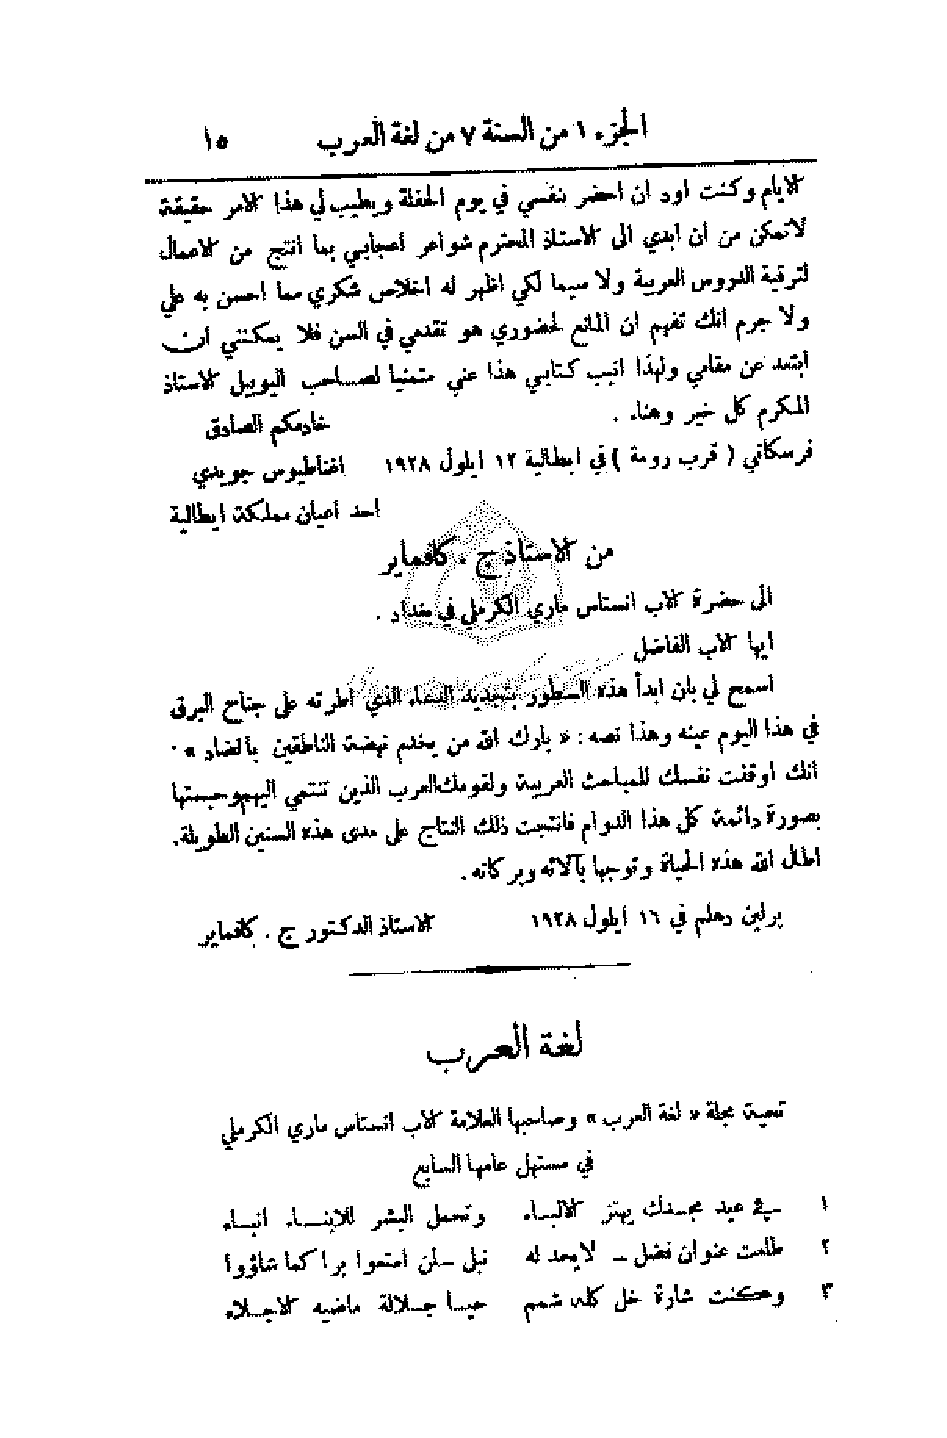 الجزء ١ من السنة ٧ من لغة العرب ١٥
الايام وكنت اود ان احضر نفسي في يوم الحفلة ويطيب لي هذا الامر حقيقة
لاتمكن من ان ابدي الى الاستاذ المحترم شواعر اعجابي بما انتج من الاعمال
لترقية الدروس العربية ولا سيما لكي اظهر له اخلاص شكري مما احسن به علي
ولا جرم انك تفهم ان المانع لحضوري هو تقدمي في السن فلا يمكنني ان
ابتعد عن مقامي ولهذا انيب كتابي هذا عني متمنيا لصاحب اليوبيل الاستاذ
المكرم كل خير وهناء .
خادمكم الصادق
فرسكاتي ( قرب رومة ) في ايطالية ١٢ ايلول ١٩٢٨ اغناطيوس جويدي
احد اعيان مملكة ايطالية
من الاستاذ ج . كافماير
الى حضرة الاب انستاس ماري الكرملي في بغداد .
ايها الاب الفاضل
اسمح لي بان ابدأ هذه السطور بتجديد الدعاء الذي اطرته على جناح البرق
في هذا اليوم عينه وهذا نصه : « بارك الله من يخدم نهضة الناطقين بالضاد » .
انك اوقفت نفسك للمباحث العربية ولقومك العرب الذين تنتمي اليهم وحبستها
بصورة دائمة كل هذا الدوام فانتجت ذلك النتاج على مدى هذه السنين الطويلة .
اطال الله هذه الحياة وتوجها بآلائه وبركاته .
برلين دهلم في ١٦ ايلول ١٩٢٨ الاستاذ الدكتور ج . كافماير
لغة العرب
تحية مجلة « لغة العرب » وصاحبها العلامة الاب انستاس ماري الكرملي
في مستهل عامها السابع
١ في عيد مجدك يهتز الالباء وتحمل البشر للابناء انباء
٢ طلعت عنوان فضل لا يحد له نبل لمن امتعوا برا كما شاؤوا
٣ وكنت شارة خل كله شمم حيا جلالة ماضيه الاجلاء